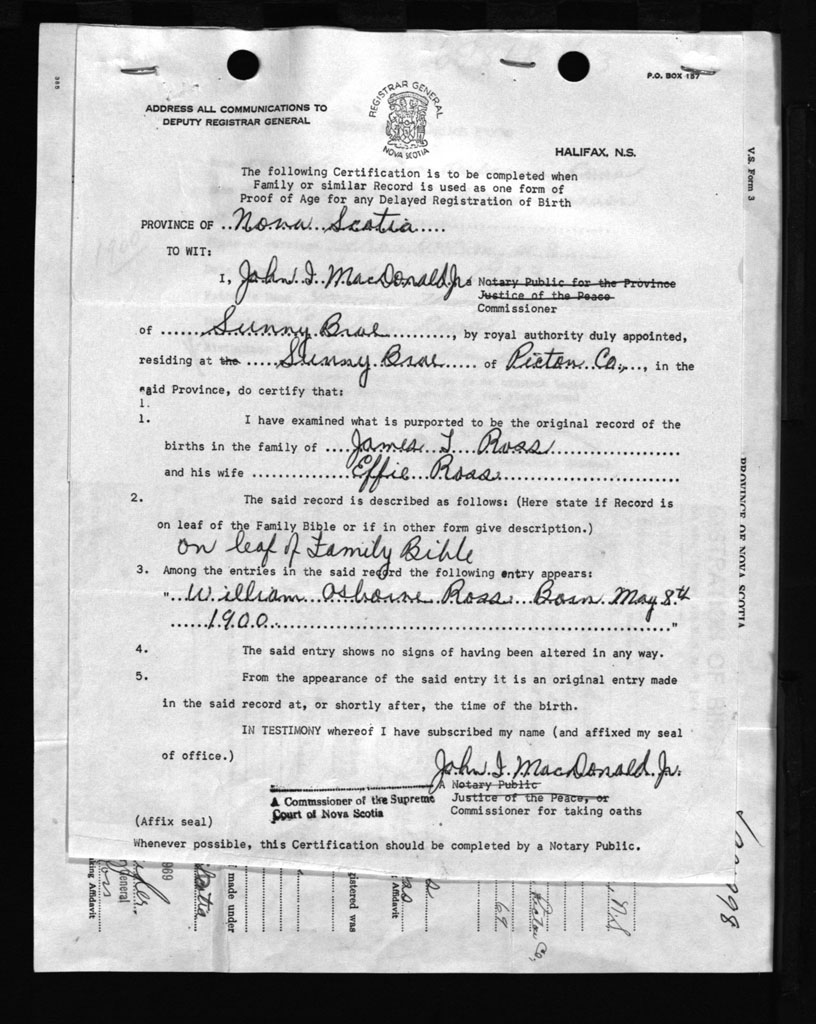 P.O. BOX 157
REGISTRAR GENERAL
NOVA SCOTIA
ADDRESS ALL COMMUNICATIONS TO
DEPUTY REGISTRAR GENERAL
HALIFAX, N.S.
V.S. Form 3
The following Certification is to be completed when
Family or similar Record is used as one form of
Proof of Age for any Delayed Registration of Birth
PROVINCE OF ..Nova Scotia.....
TO WIT:
I, John I. MacDonald Jr. a Notary Public for the Province
Justice of the Peace
Commissioner
of .......Sunny Brae..........., by royal authority duly appointed,
residing at the .....Sunny Brae..... of Pictou Co...., in the
said Province, do certify that:
1.
1. I have examined what is purported to be the original record of the
births in the family of ....James I Ross......................
and his wife ...............Effie Ross...........................
2. The said record is described as follows: (Here state if Record is
on leaf of the Family Bible or if in other form give description.)
on leaf of Family Bible
3. Among the entries in the said record the following entry appears:
"..William Osborne Ross Born May 8th
......1900......................................................."
4. The said entry shows no signs of having been altered in any way.
5. From the appearance of the said entry it is an original entry made
in the said record at, or shortly after, the time of the birth.
IN TESTIMONY whereof I have subscribed my name (and affixed my seal
of office.)
John I. MacDonald Jr.
A Notary Public
A Commssioner of the Supreme Justice of the Peace, or
Court of Nova Scotia Commissioner for taking oaths
(Affix seal)
Whenever possible, this Certification should be completed by a Notary Public.
PROVINCE OF NOVA SCOTIA
1900
969
General
king Affidavit
Scotia
made under
istered was
Affidavit
69
Pictou Co,
N.S.